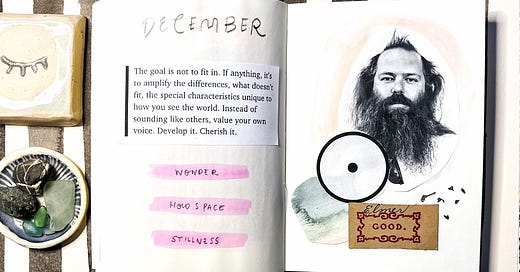 DECEMBER
The goal is not to fit in. If anything, it's
to amplify the differences, what doesn't
fit, the special characteristics unique to
how you see the world. Instead of
sounding like others, value your own
voice. Develop it. Cherish it.
WONDER
HOLD SPACE
STILLNESS
Elmer
GOOD.